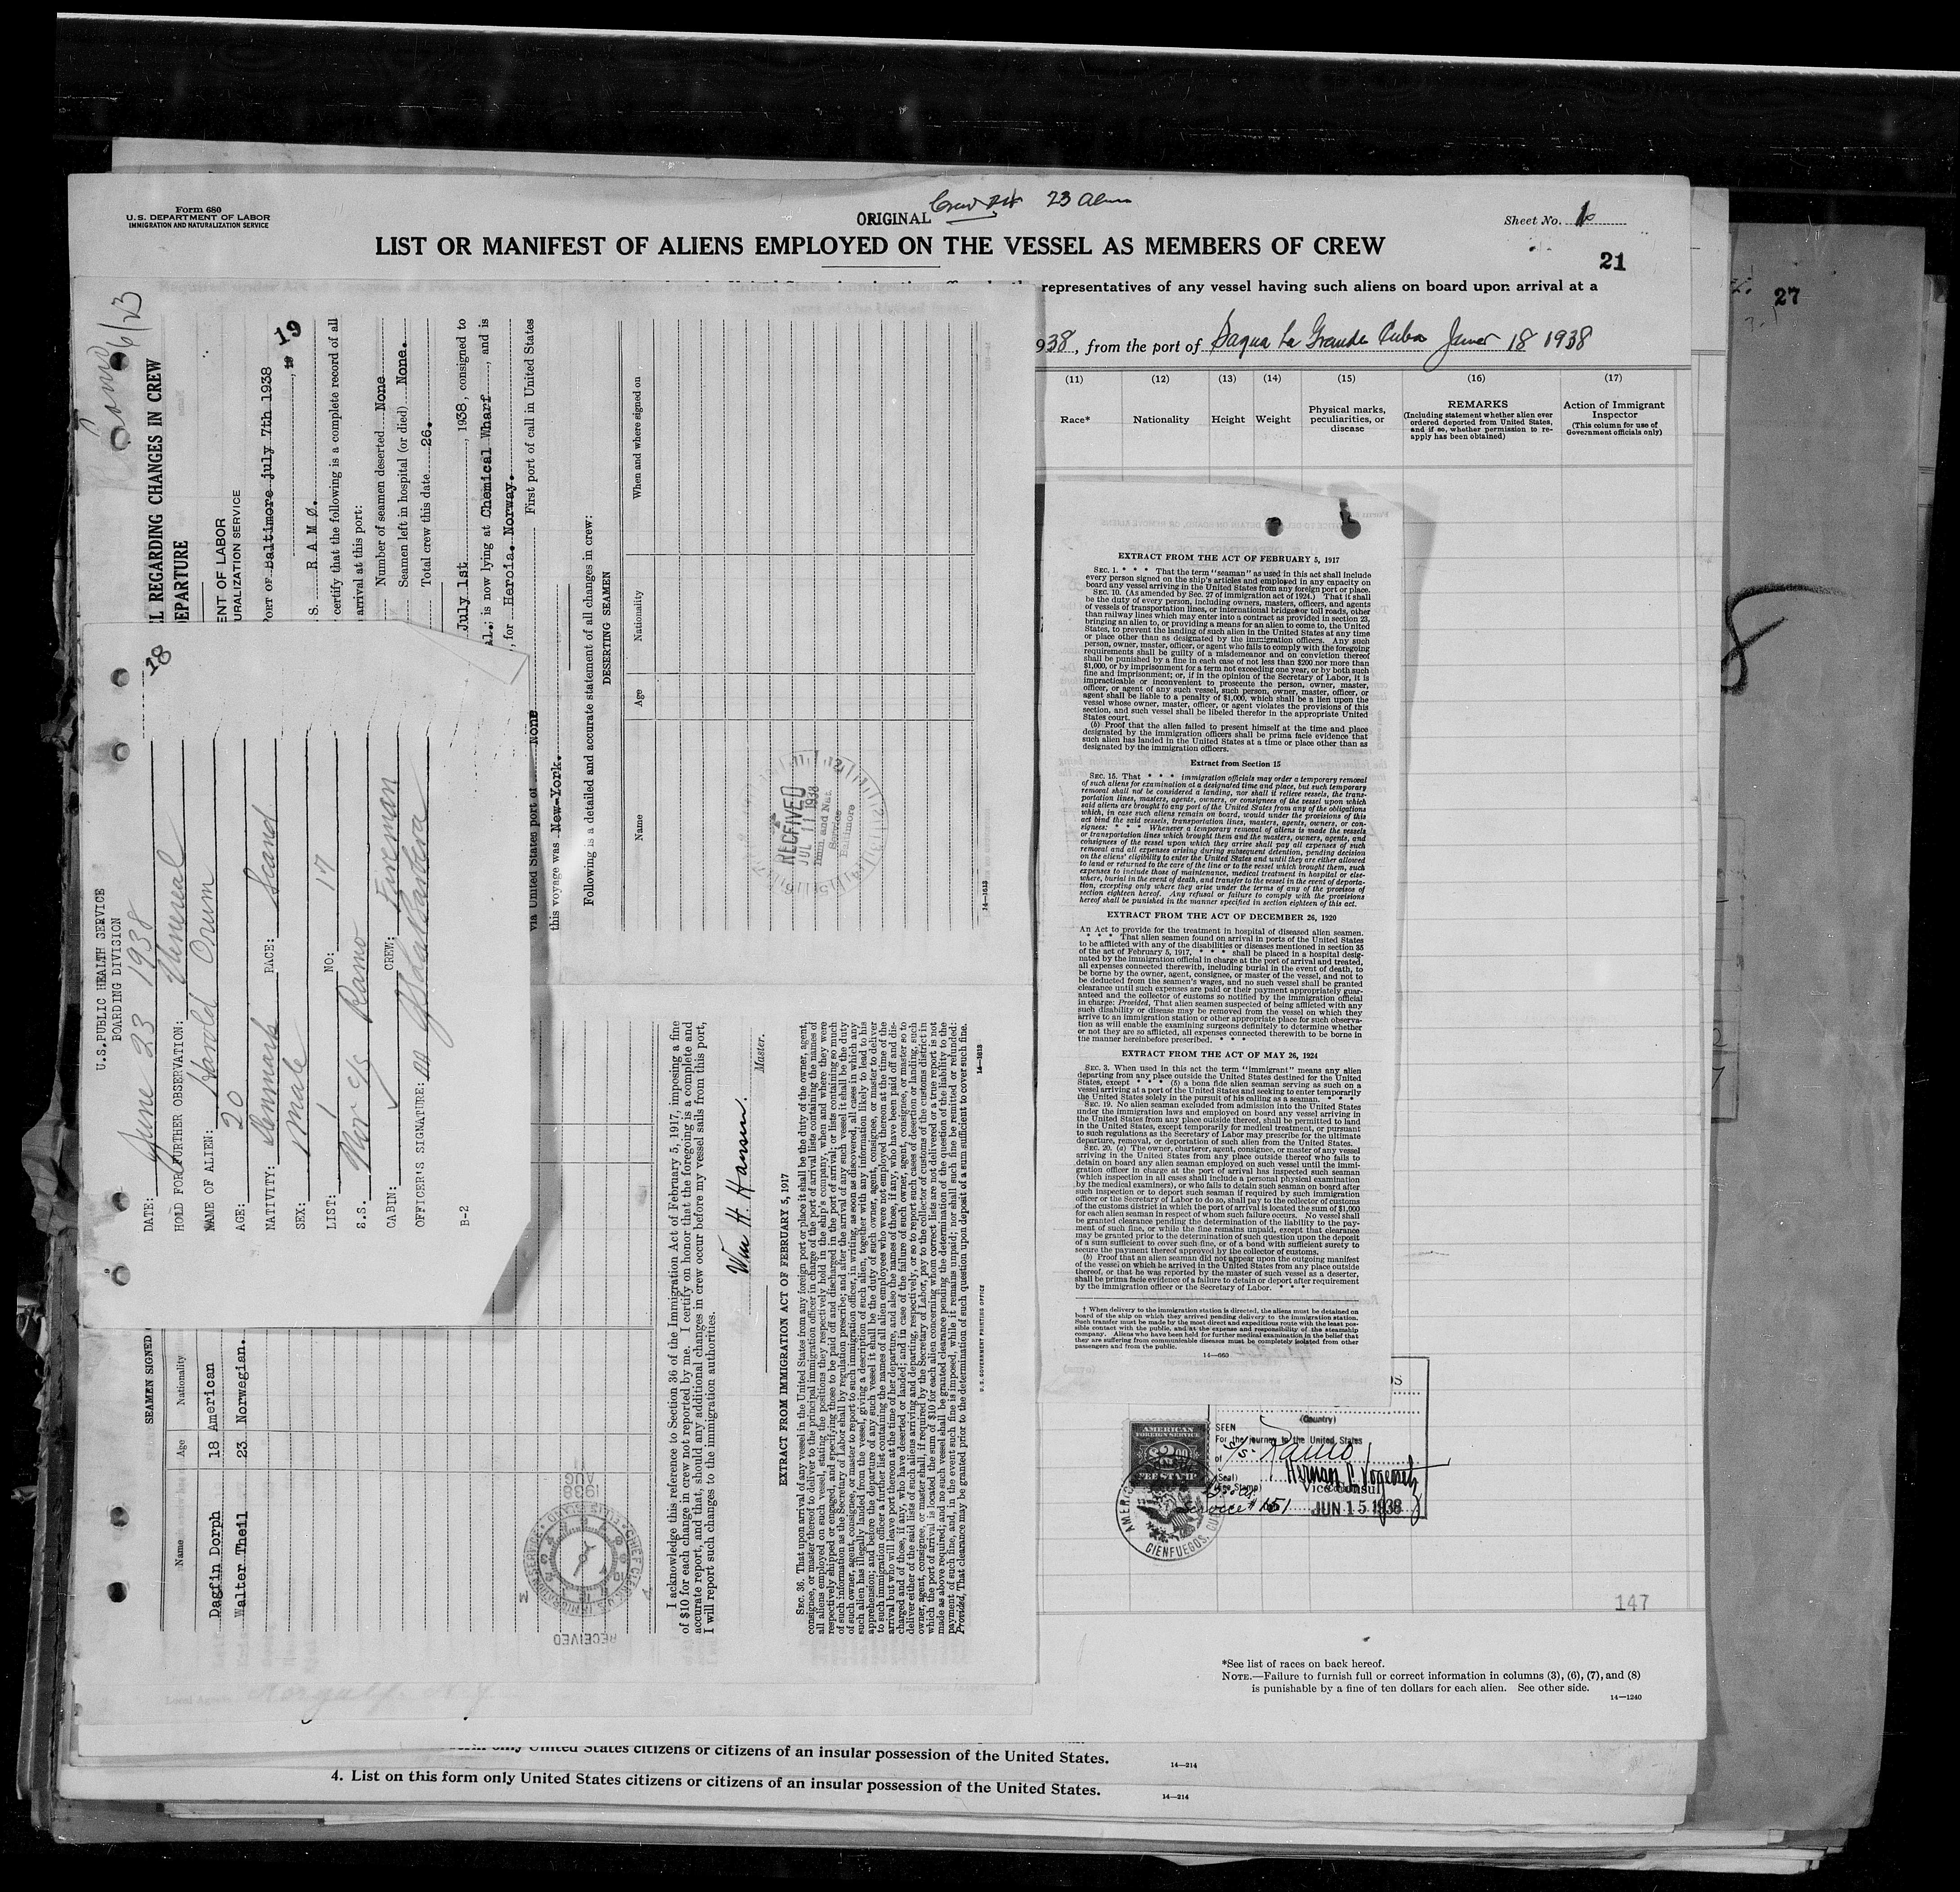 Form 680
U.S. DEPARTMENT OF LABOR
IMMIGRATION AND NATURALIZATION SERVICE
ORIGINAL
23
Sheet No. 1
LIST OR MANIFEST OF ALIENS EMPLOYED ON THE VESSEL AS MEMBERS OF CREW
21
27
representatives of any vessel having such aliens on board upon arrival at a
938, from the port of Sagua La Grande Cuba 18 1938
(11) (12) (13) (14) (15) (16) (17)
Race* Nationality Height Weight Physical marks, peculiarities, or disease
REMARKS
(Including statement whether alien ever
ordered deported from United States,
and if so, whether permission to re-
apply has been obtained)
Action of Immigrant
Inspector
(This column for use of
Government officials only)
6/23
L REGARDING CHANGES IN CREW
EPARTURE
ENT OF LABOR
URALIZATION SERVICE
PORT OF Baltimore july 7th 1938
19
S. R A M Ø.
certify that the following is a complete record of all
arrival at this port:
Number of seamen deserted None
Seamen left in hospital (or died) None.
Total crew this date 26.
July 1st, 1938, consigned to
al.; is now lying at Chemical Wharf, and is
, for Heroia. Norway.
via United States port of None First port of call in United States
this voyage was New-York.
Following is a detailed and accurate statement of all changes in crew:
DESERTING SEAMEN
Name Age Nationality When and where signed on
RECEIVED
JUL 11 1938
Imm. and Nat.
Service
Baltimore
14—1613
18
U.S.PUBLIC HEALTH SERVICE
BOARDING DIVISION
DATE: June 23 1938
HOLD FOR FURTHER OBSERVATION: Venereal
NAME OF ALIEN: Harold Orum
AGE: 20
NATIVITY: Denmark RACE: Scand
SEX: Male
LIST: 1 NO: 17
S.S. Nor Ramo
CABIN: CREW: Fireman
OFFICER'S SIGNATURE:
B-2
SEAMEN SIGNED
Name Age Nationality
Dagfin Dorph 18 American
Walter Theil 23 Norwegian.
RECEIVED
1938
AUG
11
I acknowledge this reference to Section 36 of the Immigration Act of February 5, 1917, imposing a fine
of $10 for each change in crew not reported by me. I certify on honor that the foregoing is a complete and
accurate report, and that, should any additional changes in crew occur before my vessel sails from this port,
I will report such changes to the immigration authorities.
Wm H. Hansen.
Master.
EXTRACT FROM IMMIGRATION ACT OF FEBRUARY 5, 1917
SEC. 36. That upon arrival of any vessel in the United States from any foreign port or place it shall be the duty of the owner, agent,
consignee, or master thereof to deliver to the principal immigration officer in charge of the port of arrival lists containing the names of
all aliens employed on such vessel, stating the positions they respectively hold in the ship's company, when and where they were
respectively shipped or engaged, and specifying those to be paid off and discharged in the port of arrival; or lists containing so much
of such information as the Secretary of Labor shall by regulation prescribe; and after the arrival of any such vessel it shall be the duty
of such owner, agent, consignee, or master to report to such immigration officer, in writing, as soon as discovered, all cases in which any
such alien has illegally landed from the vessel, giving a description of such alien, together with any information likely to lead to his
apprehension; and before the departure of any such vessel it shall be the duty of such owner, agent, consignee, or master to deliver
to such immigration officer a further list containing the names of all alien employees who were not employed thereon at the time of the
arrival but who will leave port thereon at the time of her departure, and also the names of those, if any, who have been paid off and dis-
charged and of those, if any, who have deserted or landed; and in case of the failure of such owner, agent, consignee, or master so to
deliver either of the said lists of such aliens arriving and departing, respectively, or so to report such cases of desertion or landing, such
owner, agent, consignee, or master shall, if required by the Secretary of Labor, pay to the collector of customs of the customs district in
which the port of arrival is located the sum of $10 for each alien concerning whom correct lists are not delivered or a true report is not
made as above required; and no such vessel shall be granted clearance pending the determination of the question of the liability to the
payment of such fine, and, in the event such fine is imposed, while it remains unpaid; nor shall such fine be remitted or refunded:
Provided, That clearance may be granted prior to the determination of such question upon deposit of a sum sufficient to cover such fine.
U.S. GOVERNMENT PRINTING OFFICE 14—1613
EXTRACT FROM THE ACT OF FEBRUARY 5, 1917
SEC. 1. * * * That the term "seaman" as used in this act shall include
every person signed on the ship's articles and employed in any capacity on
board any vessel arriving in the United States from any foreign port or place.
SEC. 10. (As amended by Sec. 27 of immigration act of 1924.) That it shall
be the duty of every person, including owners, masters, officers, and agents
of vessels of transportation lines, or international bridges or toll roads, other
than railway lines which may enter into a contract as provided in section 23,
bringing an alien to, or providing a means for an alien to come to, the United
States, to prevent the landing of such alien in the United States at any time
or place other than as designated by the immigration officers. Any such
person, owner, master, officer, or agent who fails to comply with the foregoing
requirements shall be guilty of a misdemeanor and on conviction thereof
shall be punished by a fine in each case of not less than $200 nor more than
$1,000, or by imprisonment for a term not exceeding one year, or by both such
fine and imprisonment; or, if in the opinion of the Secretary of Labor, it is
impracticable or inconvenient to prosecute the person, owner, master,
officer, or agent of any such vessel, such person, owner, master, officer, or
agent shall be liable to a penalty of $1,000, which shall be a lien upon the
vessel whose owner, master, officer, or agent violates the provisions of this
section, and such vessel shall be libeled therefor in the appropriate United
States court.
(b) Proof that the alien failed to present himself at the time and place
designated by the immigration officers shall be prima facie evidence that
such alien has landed in the United States at a time or place other than as
designated by the immigration officers.
Extract from Section 15
SEC. 15. That * * * immigration officials may order a temporary removal
of such aliens for examination at a designated time and place, but such temporary
removal shall not be considered a landing, nor shall it relieve vessels, the trans-
portation lines, masters, agents, owners, or consignees of the vessel upon which
said aliens are brought to any port of the United States from any of the obligations
which, in case such aliens remain on board, would under the provisions of this
act bind the said vessels, transportation lines, masters, agents, owners, or con-
signees: * * * Whenever a temporary removal of aliens is made the vessels
or transportation lines which brought them and the masters, owners, agents, and
consignees of the vessel upon which they arrive shall pay all expenses of such
removal and all expenses arising during subsequent detention, pending decision
on the aliens' eligibility to enter the United States and until they are either allowed
to land or returned to the care of the line or to the vessel which brought them, such
expenses to include those of maintenance, medical treatment in hospital or else-
where, burial in the event of death, and transfer to the vessel in the event of deporta-
tion, excepting only where they arise under the terms of any of the provisos of
section eighteen hereof. Any refusal or failure to comply with the provisions
hereof shall be punished in the manner specified in section eighteen of this act.
EXTRACT FROM THE ACT OF DECEMBER 26, 1920
An Act to provide for the treatment in hospital of diseased alien seamen.
* * * That alien seamen found on arrival in ports of the United States
to be afflicted with any of the disabilities or diseases mentioned in section 35
of the act of February 5, 1917, * * * shall be placed in a hospital desig-
nated by the immigration official in charge at the port of arrival and treated,
all expenses connected therewith, including burial in the event of death, to
be borne by the owner, agent, consignee, or master of the vessel, and not to
be deducted from the seamen's wages, and no such vessel shall be granted
clearance until such expenses are paid or their payment appropriately guar-
anteed and the collector of customs so notified by the immigration official
in charge: Provided, That alien seamen suspected of being afflicted with any
such disability or disease may be removed from the vessel on which they
arrive to an immigration station or other appropriate place for such observa-
tion as will enable the examining surgeons definitely to determine whether
or not they are so afflicted, all expenses connected therewith to be borne in
the manner hereinbefore prescribed. * * *
EXTRACT FROM THE ACT OF MAY 26, 1924
SEC. 3. When used in this act the term "immigrant" means any alien
departing from any place outside the United States destined for the United
States, except * * * (5) a bona fide alien seaman serving as such on a
vessel arriving at a port of the United States and seeking to enter temporarily
the United States solely in the pursuit of his calling as a seaman. * * *
SEC. 19. No alien seaman excluded from admission into the United States
under the immigration laws and employed on board any vessel arriving in
the United States from any place outside thereof, shall be permitted to land
in the United States, except temporarily for medical treatment, or pursuant
to such regulations as the Secretary of Labor may prescribe for the ultimate
departure, removal, or deportation of such alien from the United States.
SEC. 20. (a) The owner, charterer, agent, consignee, or master of any vessel
arriving in the United States from any place outside thereof who fails to
detain on board any alien seaman employed on such vessel until the immi-
gration officer in charge at the port of arrival has inspected such seaman
(which inspection in all cases shall include a personal physical examination
by the medical examiners), or who fails to detain such seaman on board after
such inspection or to deport such seaman if required by such immigration
officer or the Secretary of Labor to do so, shall pay to the collector of customs
of the customs district in which the port of arrival is located the sum of $1,000
for each alien seaman in respect of whom such failure occurs. No vessel shall
be granted clearance pending the determination of the liability to the pay-
ment of such fine, or while the fine remains unpaid, except that clearance
may be granted prior to the determination of such question upon the deposit
of a sum sufficient to cover such fine, or of a bond with sufficient surety to
secure the payment thereof approved by the collector of customs.
(b) Proof that an alien seaman did not appear upon the outgoing manifest
of the vessel on which he arrived in the United States from any place outside
thereof, or that he was reported by the master of such vessel as a deserter,
shall be prima facie evidence of a failure to detain or deport after requirement
by the immigration officer or the Secretary of Labor. * * *
† When delivery to the immigration station is directed, the aliens must be detained on
board of the ship on which they arrived pending delivery to the immigration station.
Such transfer must be made by the most direct and expeditious route with the least pos-
sible contact with the public, and at the expense and responsibility of the steamship
company. Aliens who have been held for further medical examination in the belief that
they are suffering from communicable diseases must be completely isolated from other
passengers and from the public.
14—660
AMERICAN
FOREIGN SERVICE
$2.00
FEE STAMP
CIENFUEGOS, CU
(Country)
SEEN
For the journey to the United States
of S/S. Ramo
(Seal)
Vice Consul
151 JUN 15 1938
147
*See list of races on back hereof.
NOTE.—Failure to furnish full or correct information in columns (3), (6), (7), and (8)
is punishable by a fine of ten dollars for each alien. See other side.
14—1240
only United States citizens or citizens of an insular possession of the United States.
14—214
4. List on this form only United States citizens or citizens of an insular possession of the United States.
14—214